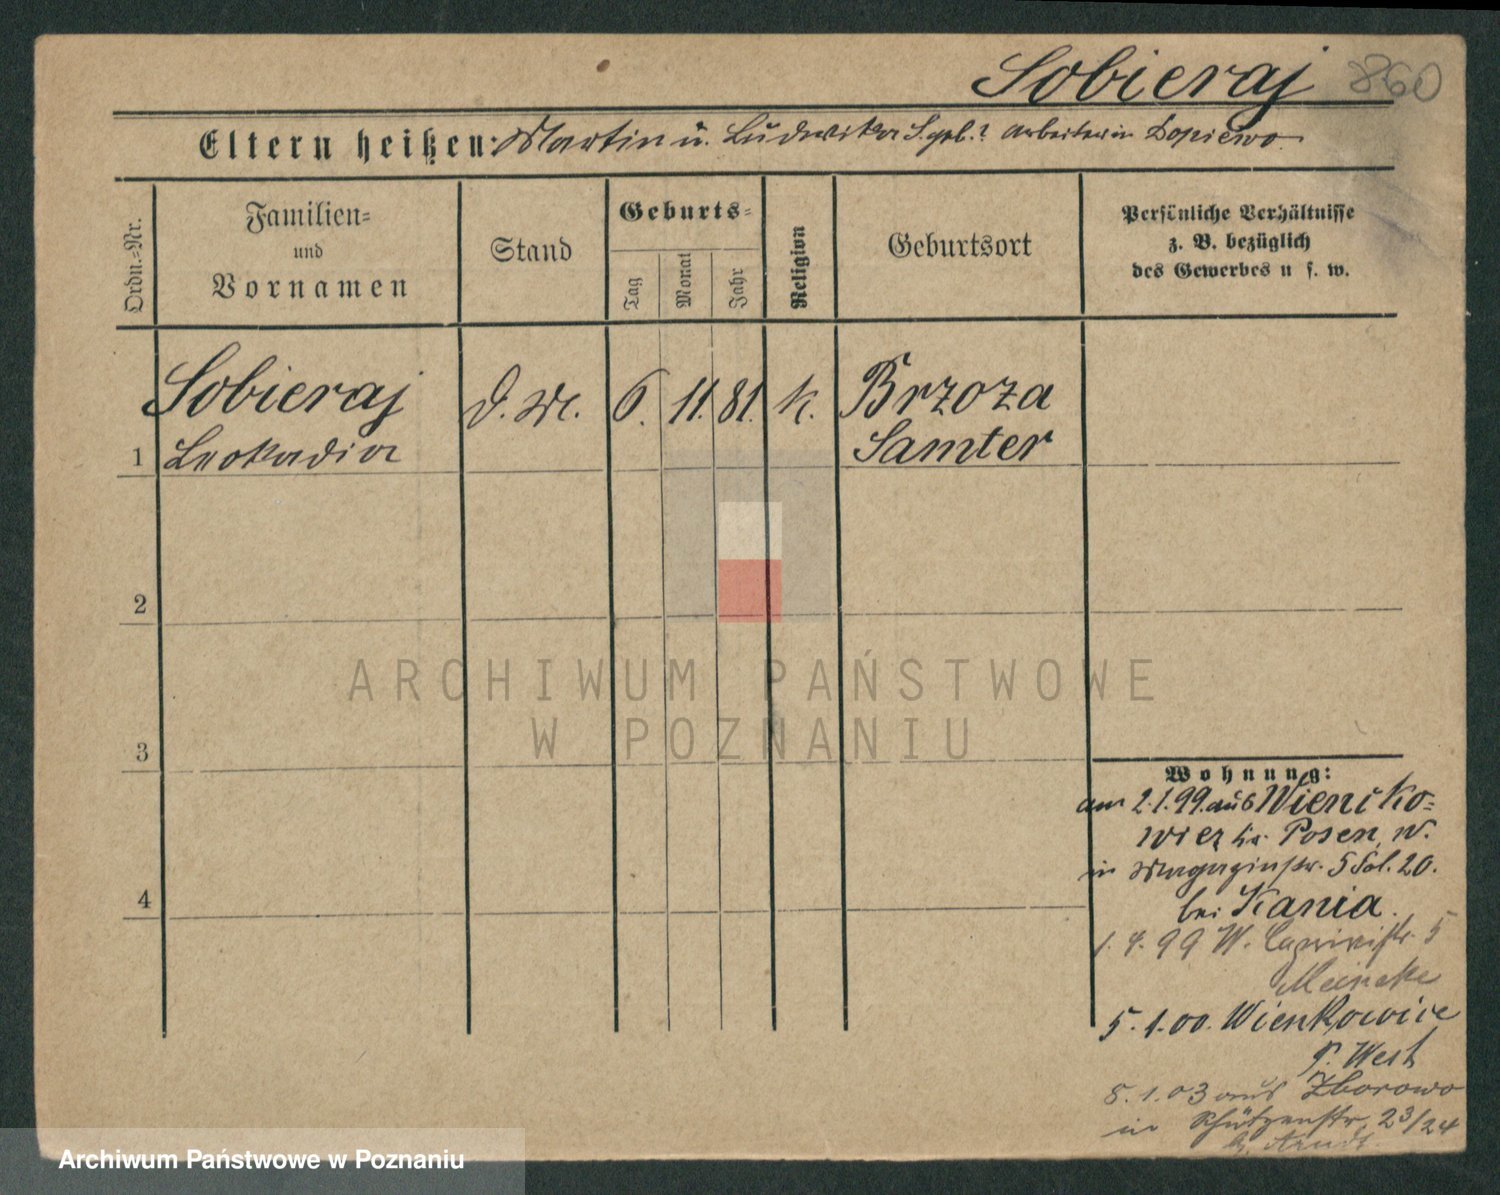 Sobieraj 860
Eltern heißen: Martin u. Ludwika S. geb.? Arbeiter in Dopiewo
Ordn.-Nr.
Familien-
und
Vornamen
Stand
Geburts-
Tag
Monat
Jahr
Religion
Geburtsort
Persönliche Verhältnisse
z. B. bezüglich
des Gewerbes u s. w.
Sobieraj D. M. 6. 11. 81. K. Brzoza
1 Leokadia Samter
2
3
4
Wohnung:
am 2.1.99. aus Wiencko=
wiez Kr. Posen, W.
in Magazinstr. 5 Sol. 20.
bei Kania.
1. 4. 99 W. 5
Meineke
5. 1. 00. Wienkowice
P. West
8. 1. 03 aus Zborowo
in Schützenstr. 23/24
b. Arndt
ARCHIWUM PAŃSTWOWE
W POZNANIU
Archiwum Państwowe w Poznaniu